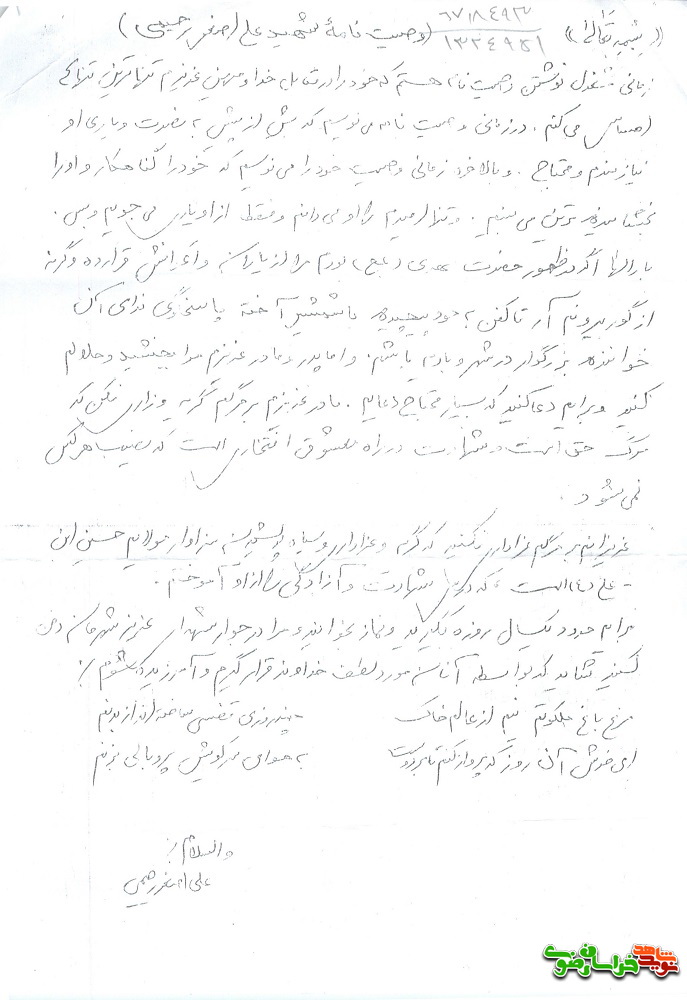 «بسمه تعالی» ۶۷۱۸۴۹۳ (وصیت نامهٔ شهید علی اصغر رحیمی)
۱۳۲۴۹۵۱
زمانی مشغول نوشتن وصیت نامه هستم که خود را در مقابل خدا و میهن عزیزم تنها ترین تنهای
احساس می کنم ، در زمانی وصیت نامه می نویسم که بیش از پیش به نصرت و یاری او
نیازمندم و محتاج . و بالاخره زمانی وصیت خود را می نویسم که خود را گناهکار و او را
بخشاینده ترین می بینم . و تنها امیدم را او می دانم و فقط از او یاری می جویم و بس .
بارالها اگر در ظهور حضرت مهدی (عج) بودم مرا از یاران و اعوانش قرار ده و گرنه
از گور بیرونم آر تا کفن به خود پیچیده با شمشیر آخته پاسخگوی ندای آن
خواننده بزرگوار در شهر و بادیه باشم . و اما پدر و مادر عزیزم مرا ببخشید و حلالم
کنید و برایم دعا کنید که بسیار محتاج دعایم . مادر عزیزم بر مرگم گریه و زاری نکن که
مرگ حق است و شهادت در راه معشوق افتخاری است که نصیب هر کس
نمی شود .
عزیزانم بر مرگم عزاداری نکنید که گریه و عزاداری و سیاه پوشیدن سزاوار مولایم حسین ابن
علی (ع) است که درس شهادت و آزادگی را از او آموختم .
برایم حدود یکسال روزه بگیرید و نماز بخوانید و مرا در جوار شهدای عزیز شهرمان دفن
کنید تا شاید که بواسطه آنان مورد لطف خداوند قرار گیرم و آمرزیده شوم
مرغ باغ ملکوتم نیم از عالم خاک چند روزی قفسی ساخته اند از بدنم
ای خوش آن روز که پرواز کنم تا بر دوست به هوای سر کویش پر و بالی بزنم
والسلام
علی اصغر رحیمی
نوید شاهد خراسان رضوی